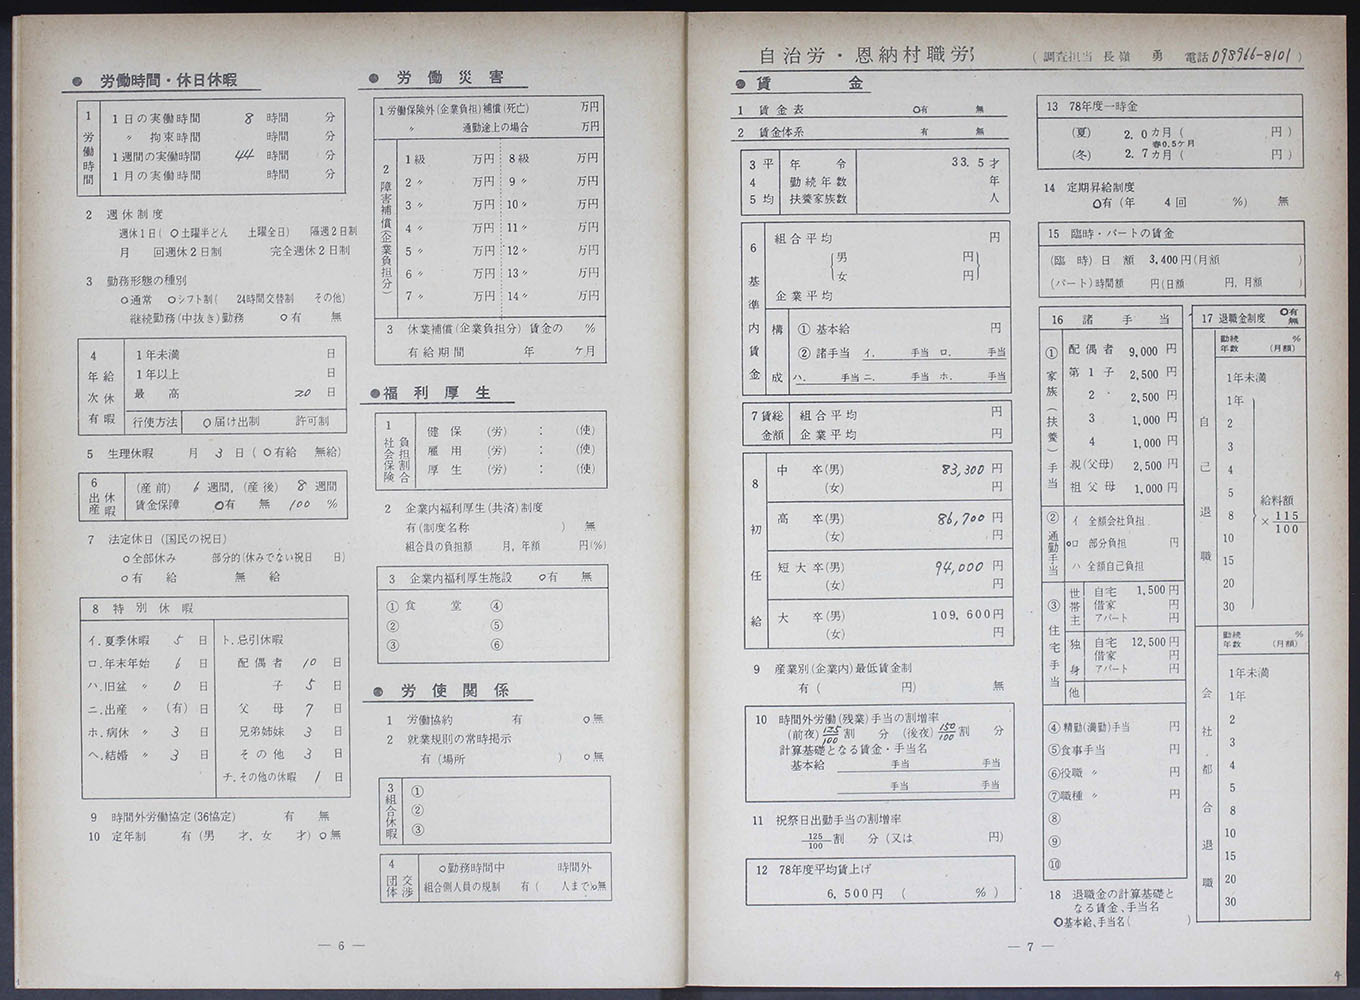 ● 労働時間・休日休暇
1 労働時間
1日の実働時間 8 時間 分
〃 拘束時間 時間 分
1週間の実働時間 44 時間 分
1月の実働時間 時間 分
2 週休制度
週休1日( ○土曜半どん 土曜全日) 隔週2日制
月 回週休2日制 完全週休2日制
3 勤務形態の種別
○通常 ○シフト制( 24時間交替制 その他)
継続勤務(中抜き)勤務 ○有 無
4 年次有給休暇
1年未満 日
1年以上 日
最高 20 日
行使方法 ○届け出制 許可制
5 生理休暇 月 3 日 ( ○有給 無給)
6 出産休暇
(産前) 6 週間, (産後) 8 週間
賃金保障 ○有 無 100 %
7 法定休日 (国民の祝日)
○全部休み 部分的(休みでない祝日 日)
○有給 無給
8 特別休暇
イ.夏季休暇 5 日
ロ.年末年始 6 日
ハ.旧盆 〃 0 日
ニ.出産 〃 (有) 日
ホ.病休 〃 3 日
ヘ.結婚 〃 3 日
ト.忌引休暇
配偶者 10 日
子 5 日
父母 7 日
兄弟姉妹 3 日
その他 3 日
チ.その他の休暇 1 日
9 時間外労働協定(36協定) 有 無
10 定年制 有(男 才, 女 才) ○無
● 労働災害
1 労働保険外(企業負担)補償(死亡) 万円
〃 通勤途上の場合 万円
2 障害補償(企業負担分)
1級 万円 8級 万円
2〃 万円 9〃 万円
3〃 万円 10〃 万円
4〃 万円 11〃 万円
5〃 万円 12〃 万円
6〃 万円 13〃 万円
7〃 万円 14〃 万円
3 休業補償(企業負担分) 賃金の %
有給期間 年 ケ月
●福利厚生
1 社会保険負担割合
健保 (労) : (使)
雇用 (労) : (使)
厚生 (労) : (使)
2 企業内福利厚生(共済)制度
有(制度名称 ) 無
組合員の負担額 月, 年額 円(%)
3 企業内福利厚生施設 ○有 無
①食堂 ④
② ⑤
③ ⑥
● 労使関係
1 労働協約 有 ○無
2 就業規則の常時掲示
有(場所 ) ○無
3 組合休暇
①
②
③
4 団体交渉
○勤務時間中 時間外
組合側人員の規制 有( 人まで)○無
— 6 —
自治労・恩納村職労 (調査担当 長嶺 勇 電話098966-8101)
● 賃金
1 賃金表 ○有 無
2 賃金体系 有 無
3 平 年令 33.5才
4 勤続年数 年
5 均 扶養家族数 人
6 基準内賃金
組合平均 円
男 円
女 円
企業平均
構成
① 基本給 円
② 諸手当 イ. 手当 ロ. 手当
ハ. 手当 ニ. 手当 ホ. 手当
7 賃金総額
組合平均 円
企業平均 円
8 初任給
中卒(男) 83,300 円
(女) 円
高卒(男) 86,700 円
(女) 円
短大卒(男) 94,000 円
(女) 円
大卒(男) 109,600円
(女) 円
9 産業別(企業内)最低賃金制
有( 円) 無
10 時間外労働(残業)手当の割増率
(前夜) 125/100 割 分 (後夜) 150/100 割 分
計算基礎となる賃金・手当名
基本給 手当 手当
手当 手当
11 祝祭日出勤手当の割増率
125/100 割 分 (又は 円)
12 78年度平均賃上げ
6,500円 ( %)
13 78年度一時金
(夏) 2.0カ月( 円)
春0.5ケ月
(冬) 2.7カ月( 円)
14 定期昇給制度
○有(年 4回 %) 無
15 臨時・パートの賃金
(臨時)日額 3,400円(月額 )
(パート)時間額 円(日額 円, 月額 )
16 諸手当
①家族(扶養)手当
配偶者 9,000 円
第1子 2,500 円
2 2,500 円
3 1,000 円
4 1,000 円
親(父母) 2,500 円
祖父母 1,000 円
②通勤手当
イ 全額会社負担
○ロ 部分負担 円
ハ 全額自己負担
③住宅手当
世帯主 自宅 1,500円
借家 円
アパート 円
独身 自宅 12,500円
借家 円
アパート 円
他
④精勤(満勤)手当 円
⑤食事手当 円
⑥役職 〃 円
⑦職種 〃 円
⑧
⑨
⑩
17 退職金制度 ○有 無
勤続年数 % (月額)
自己退職
1年未満
1年
2
3
4
5
8
10
15
20
30
給料額
×115/100
勤続年数 % (月額)
会社都合退職
1年未満
1年
2
3
4
5
8
10
15
20
30
18 退職金の計算基礎と
なる賃金、手当名
○基本給、手当名( )
— 7 —
4